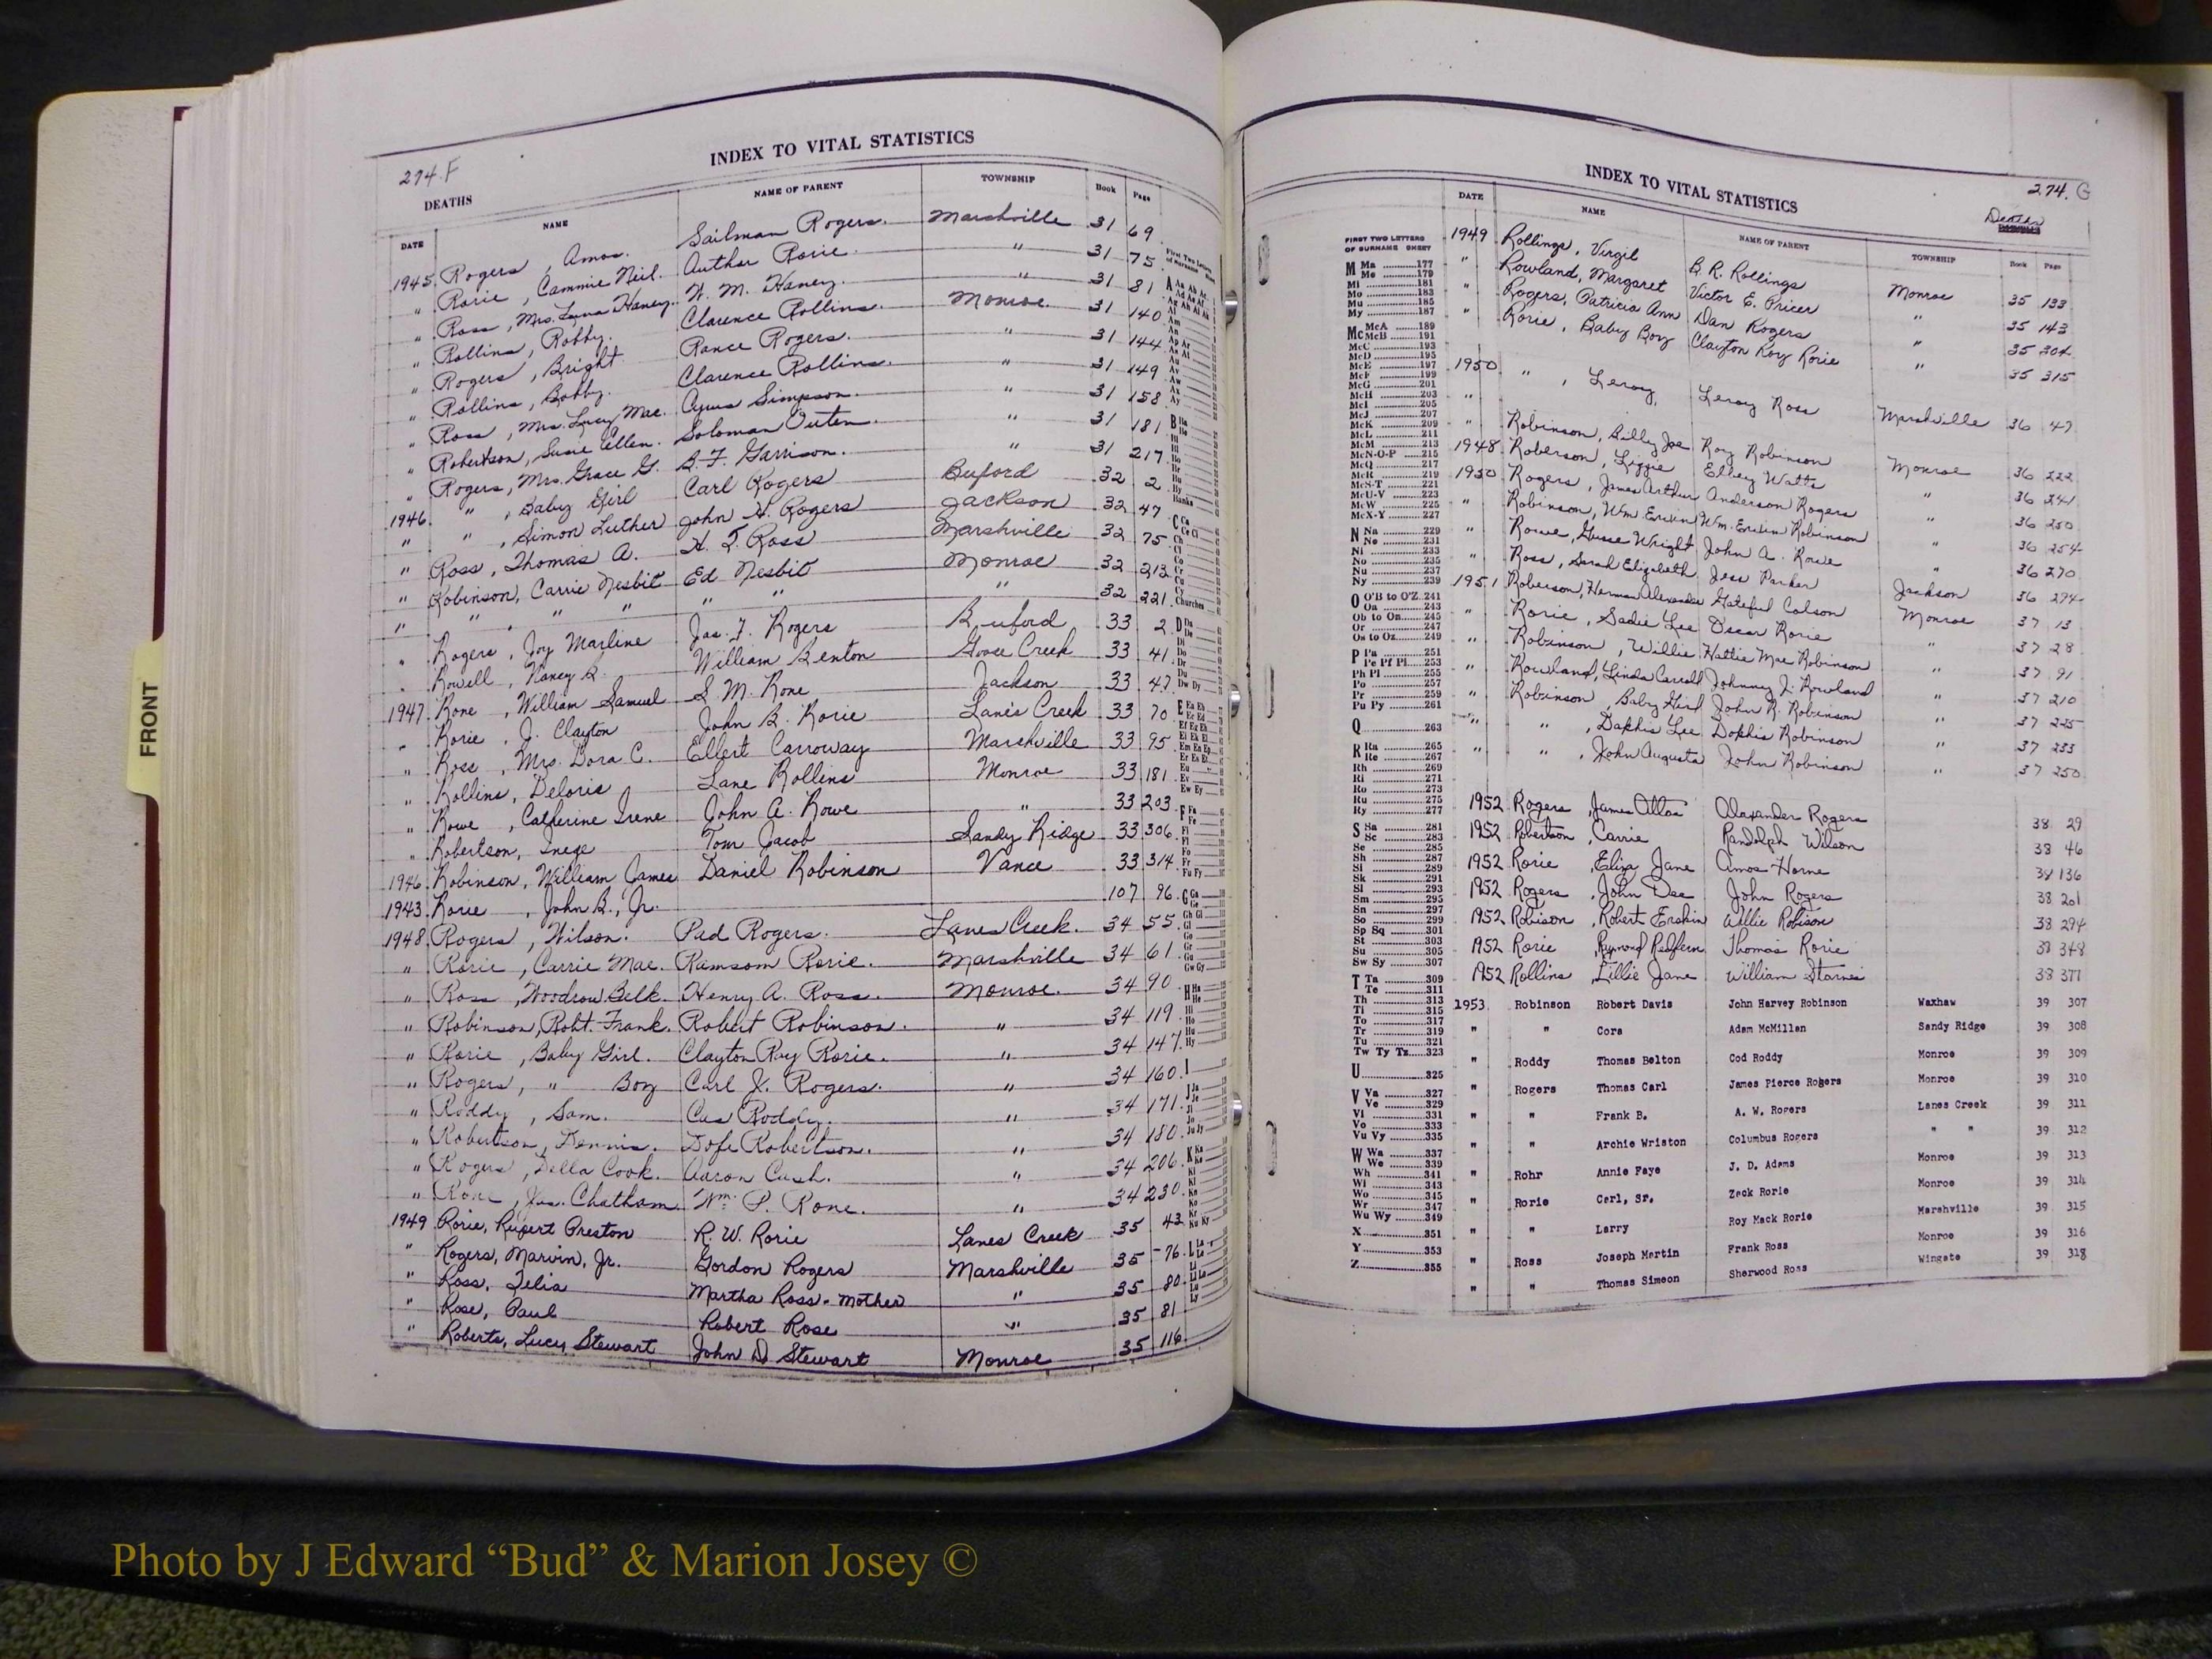 FRONT
274.F
INDEX TO VITAL STATISTICS
DEATHS
DATE NAME NAME OF PARENT TOWNSHIP Book Page
1945 Rogers, Amos. Sailman Rogers. Marshville 31 69
" Rorie, Cammie Neil. Author Rorie. " 31 75
" Ross, Mrs. Luna Haney. W. M. Haney. " 31 81
" Rollins, Robby. Clarence Rollins. Monroe. 31 140
" Rogers, Bright. Rance Rogers. " 31 144
" Rollins, Bobby. Clarence Rollins. " 31 149
" Ross, Mrs. Lucy Mae. Cyrus Simpson. " 31 158
" Robertson, Susie Ellen. Soloman Outen. " 31 181
" Rogers, Mrs. Grace G. B. F. Garrison. " 31 217
1946 " , Baby Girl Carl Rogers Buford 32 2
" " , Simon Luther John H. Rogers Jackson 32 47
" Ross, Thomas A. H. T. Ross Marshville 32 75
" Robinson, Carrie Nesbit Ed Nesbit Monroe 32 213
" " " " " " " 32 221
" Rogers, Joy Marline Jas. F. Rogers Buford 33 2
" Rowell, Nancy R. William Benton Goose Creek 33 41
1947 Rone, William Samuel S. M. Rone Jackson 33 47
" Rorie, J. Clayton John B. Rorie Lanes Creek 33 70
" Ross, Mrs. Dora C. Ellert Carroway Marshville 33 95
" Rollins, Deloris Lane Rollins Monroe 33 181
" Rowe, Catherine Irene John A. Rowe " 33 203
" Robertson, Inege Tom Jacob Sandy Ridge 33 306
1946 Robinson, William James Daniel Robinson Vance 33 314
1943 Rorie, John B., Jr. 107 96
1948 Rogers, Wilson. Pad Rogers. Lanes Creek. 34 55
" Rorie, Carrie Mae. Ramsom Rorie. Marshville 34 61
" Ross, Woodrow Belk. Henry A. Ross. Monroe. 34 90
" Robinson, Robt. Frank. Robert Robinson. " 34 119
" Rorie, Baby Girl. Clayton Roy Rorie. " 34 147
" Rogers, " Boy Carl J. Rogers. " 34 160
" Roddy, Sam. Cas Roddy. " 34 171
" Robertson, Dennis. Dofe Robertson. " 34 180
" Rogers, Della Cook. Aaron Cash. " 34 206
" Rone, Jas. Chatham. Wm. P. Rone. " 34 230
1949 Rorie, Rupert Preston R. W. Rorie Lanes Creek 35 43
" Rogers, Marvin, Jr. Gordon Rogers Marshville 35 76
" Ross, Delia Martha Ross - Mother " 35 80
" Rose, Paul Robert Rose " 35 81
" Roberts, Lucy Stewart John D Stewart Monroe 35 116
INDEX TO VITAL STATISTICS
274.G
Deaths
DATE NAME NAME OF PARENT TOWNSHIP Book Page
1949 Rollings, Virgil B. R. Rollings Monroe 35 133
" Rowland, Margaret Victor E. Pricer " 35 143
" Rogers, Patricia Ann Dan Rogers " 35 204
" Rorie, Baby Boy Clayton Roy Rorie " 35 315
1950 " , Leroy, Leroy Ross Marshville 36 47
" Robinson, Billy Joe Roy Robinson Monroe 36 222
1948 Roberson, Lizzie Elley Watts " 36 241
1950 Rogers, James Arthur Anderson Rogers " 36 250
" Robinson, Wm. Erskin Wm. Erskin Robinson " 36 254
" Rowe, Gusse Wright John A. Rowe " 36 270
" Ross, Sarah Elizabeth Jess Parker Jackson 36 294
1951 Roberson, Herman Alexander Grateful Colson Monroe 37 13
" Rorie, Sadie Lee Oscar Rorie " 37 28
" Robinson, Willie Hattie Mae Robinson " 37 91
" Rowland, Linda Carroll Johnny J. Rowland " 37 210
" Robinson, Baby Girl John R. Robinson " 37 225
" " , Dakhis Lee Dokhis Robinson " 37 233
" " , John Augusta John Robinson " 37 250
1952 Rogers, James Atlas Alexander Rogers 38 29
1952 Robertson, Carrie Randolph Wilson 38 46
1952 Rorie, Eliza Jane Amos Horne 38 136
1952 Rogers, John Dee John Rogers 38 201
1952 Robison, Robert Erskin Willie Robison 38 294
1952 Rorie, Raymond Redfern Thomas Rorie 38 348
1952 Rollins, Lillie Jane William Starnes 38 377
1953 Robinson Robert Davis John Harvey Robinson Waxhaw 39 307
" " Cora Adam McMillan Sandy Ridge 39 308
" Roddy Thomas Belton Cod Roddy Monroe 39 309
" Rogers Thomas Carl James Pierce Rogers Monroe 39 310
" " Frank B. A. W. Rogers Lanes Creek 39 311
" " Archie Wriston Columbus Rogers " " 39 312
" Rohr Annie Faye J. D. Adams Monroe 39 313
" Rorie Carl, Sr. Zack Rorie Monroe 39 314
" " Larry Roy Mack Rorie Marshville 39 315
" Ross Joseph Martin Frank Ross Monroe 39 316
" " Thomas Simeon Sherwood Ross Wingate 39 318
FIRST TWO LETTERS
OF SURNAME SHEET
M Ma 177
Me 179
Mi 181
Mo 183
Mu 185
My 187
Mc McA 189
McB 191
McC 193
McD 195
McE 197
McF 199
McG 201
McH 203
McI 205
McJ 207
McK 209
McL 211
McM 213
McN-O-P 215
McQ 217
McR 219
McS-T 221
McU-V 223
McW 225
McX-Y 227
N Na 229
Ne 231
Ni 233
No 235
Nu 237
Ny 239
O O'B to O'Z 241
Oa 243
Ob to On 245
Or 247
Os to Oz 249
P Pa 251
Pe Pf Pl 253
Ph Pi 255
Po 257
Pr 259
Pu Py 261
Q 263
R Ra 265
Re 267
Rh 269
Ri 271
Ro 273
Ru 275
Ry 277
S Sa 281
Sc 283
Se 285
Sh 287
Si 289
Sk 291
Sl 293
Sm 295
Sn 297
So 299
Sp Sq 301
St 303
Su 305
Sw Sy 307
T Ta 309
Te 311
Th 313
Ti 315
To 317
Tr 319
Tu 321
Tw Ty Tz 323
U 325
V Va 327
Ve 329
Vi 331
Vo 333
Vu Vy 335
W Wa 337
We 339
Wh 341
Wi 343
Wo 345
Wr 347
Wu Wy 349
X 351
Y 353
Z 355
Photo by J Edward “Bud” & Marion Josey ©